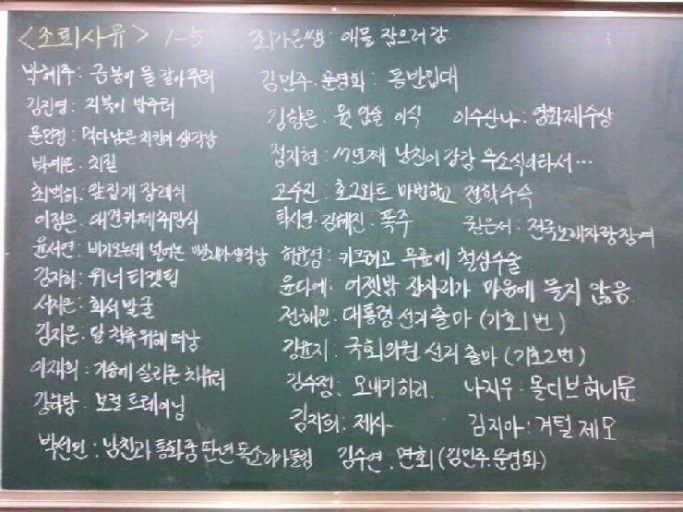 <조퇴사유> 1-5 최가은쌤: 애플 잡으러감
박혜주: 금붕어 물 갈아주러
김진영: 지북이 밥주러
문민정: 먹다남은 치킨이 생각남
박예은: 치질
최역하: 앞집개 장례식
이정은: 애견카페 취임식
윤서연: 비가오는데 널어논 빨래가 생각남
김지하: 위너티켓팅
서지은: 화석발굴
김지은: 달 착륙 위해 떠남
이재희: 가슴에 실리콘 채우러
보컬트레이닝
박선민: 남친과 통화중 딴년 목소리가들림
김민주·문영화: 동반입대
김향은: 윗 입술 이식 이수산나: 영화제수상
정지현: 17년째 남친이 감감 무소식이라서…
고수진: 호그와트 마법학교 전학수속
탁시연·김혜진: 폭주 권은서: 전국노래자랑 참여
허윤영: 키크려고 무릎에 철심수술
윤다예: 어젯밤 잠자리가 마음에 들지 않음
전해린: 대통령 선거 출마 (기호1번)
김윤지: 국회의원 선거 출마 (기호2번)
김수정: 모내기하러 나지우: 몰디브 허니문
김지희: 제사 김지아: 겨털 제모
김수연: 면회 (김민주·문영화)